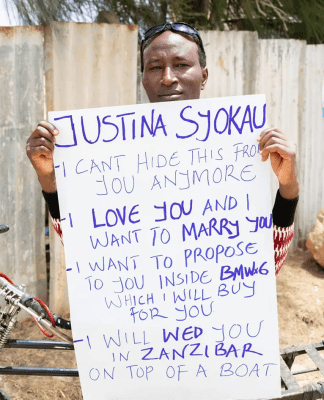 JUSTINA SYOKAU
-I CANT HIDE THIS FROM
YOU ANYMORE
-I LOVE YOU AND I
WANT TO MARRY YOU
-I WANT TO PROPOSE
TO YOU INSIDE BMWX6
WHICH I WILL BUY
FOR YOU
-I WILL WED YOU
IN ZANZIBAR
ON TOP OF A BOAT